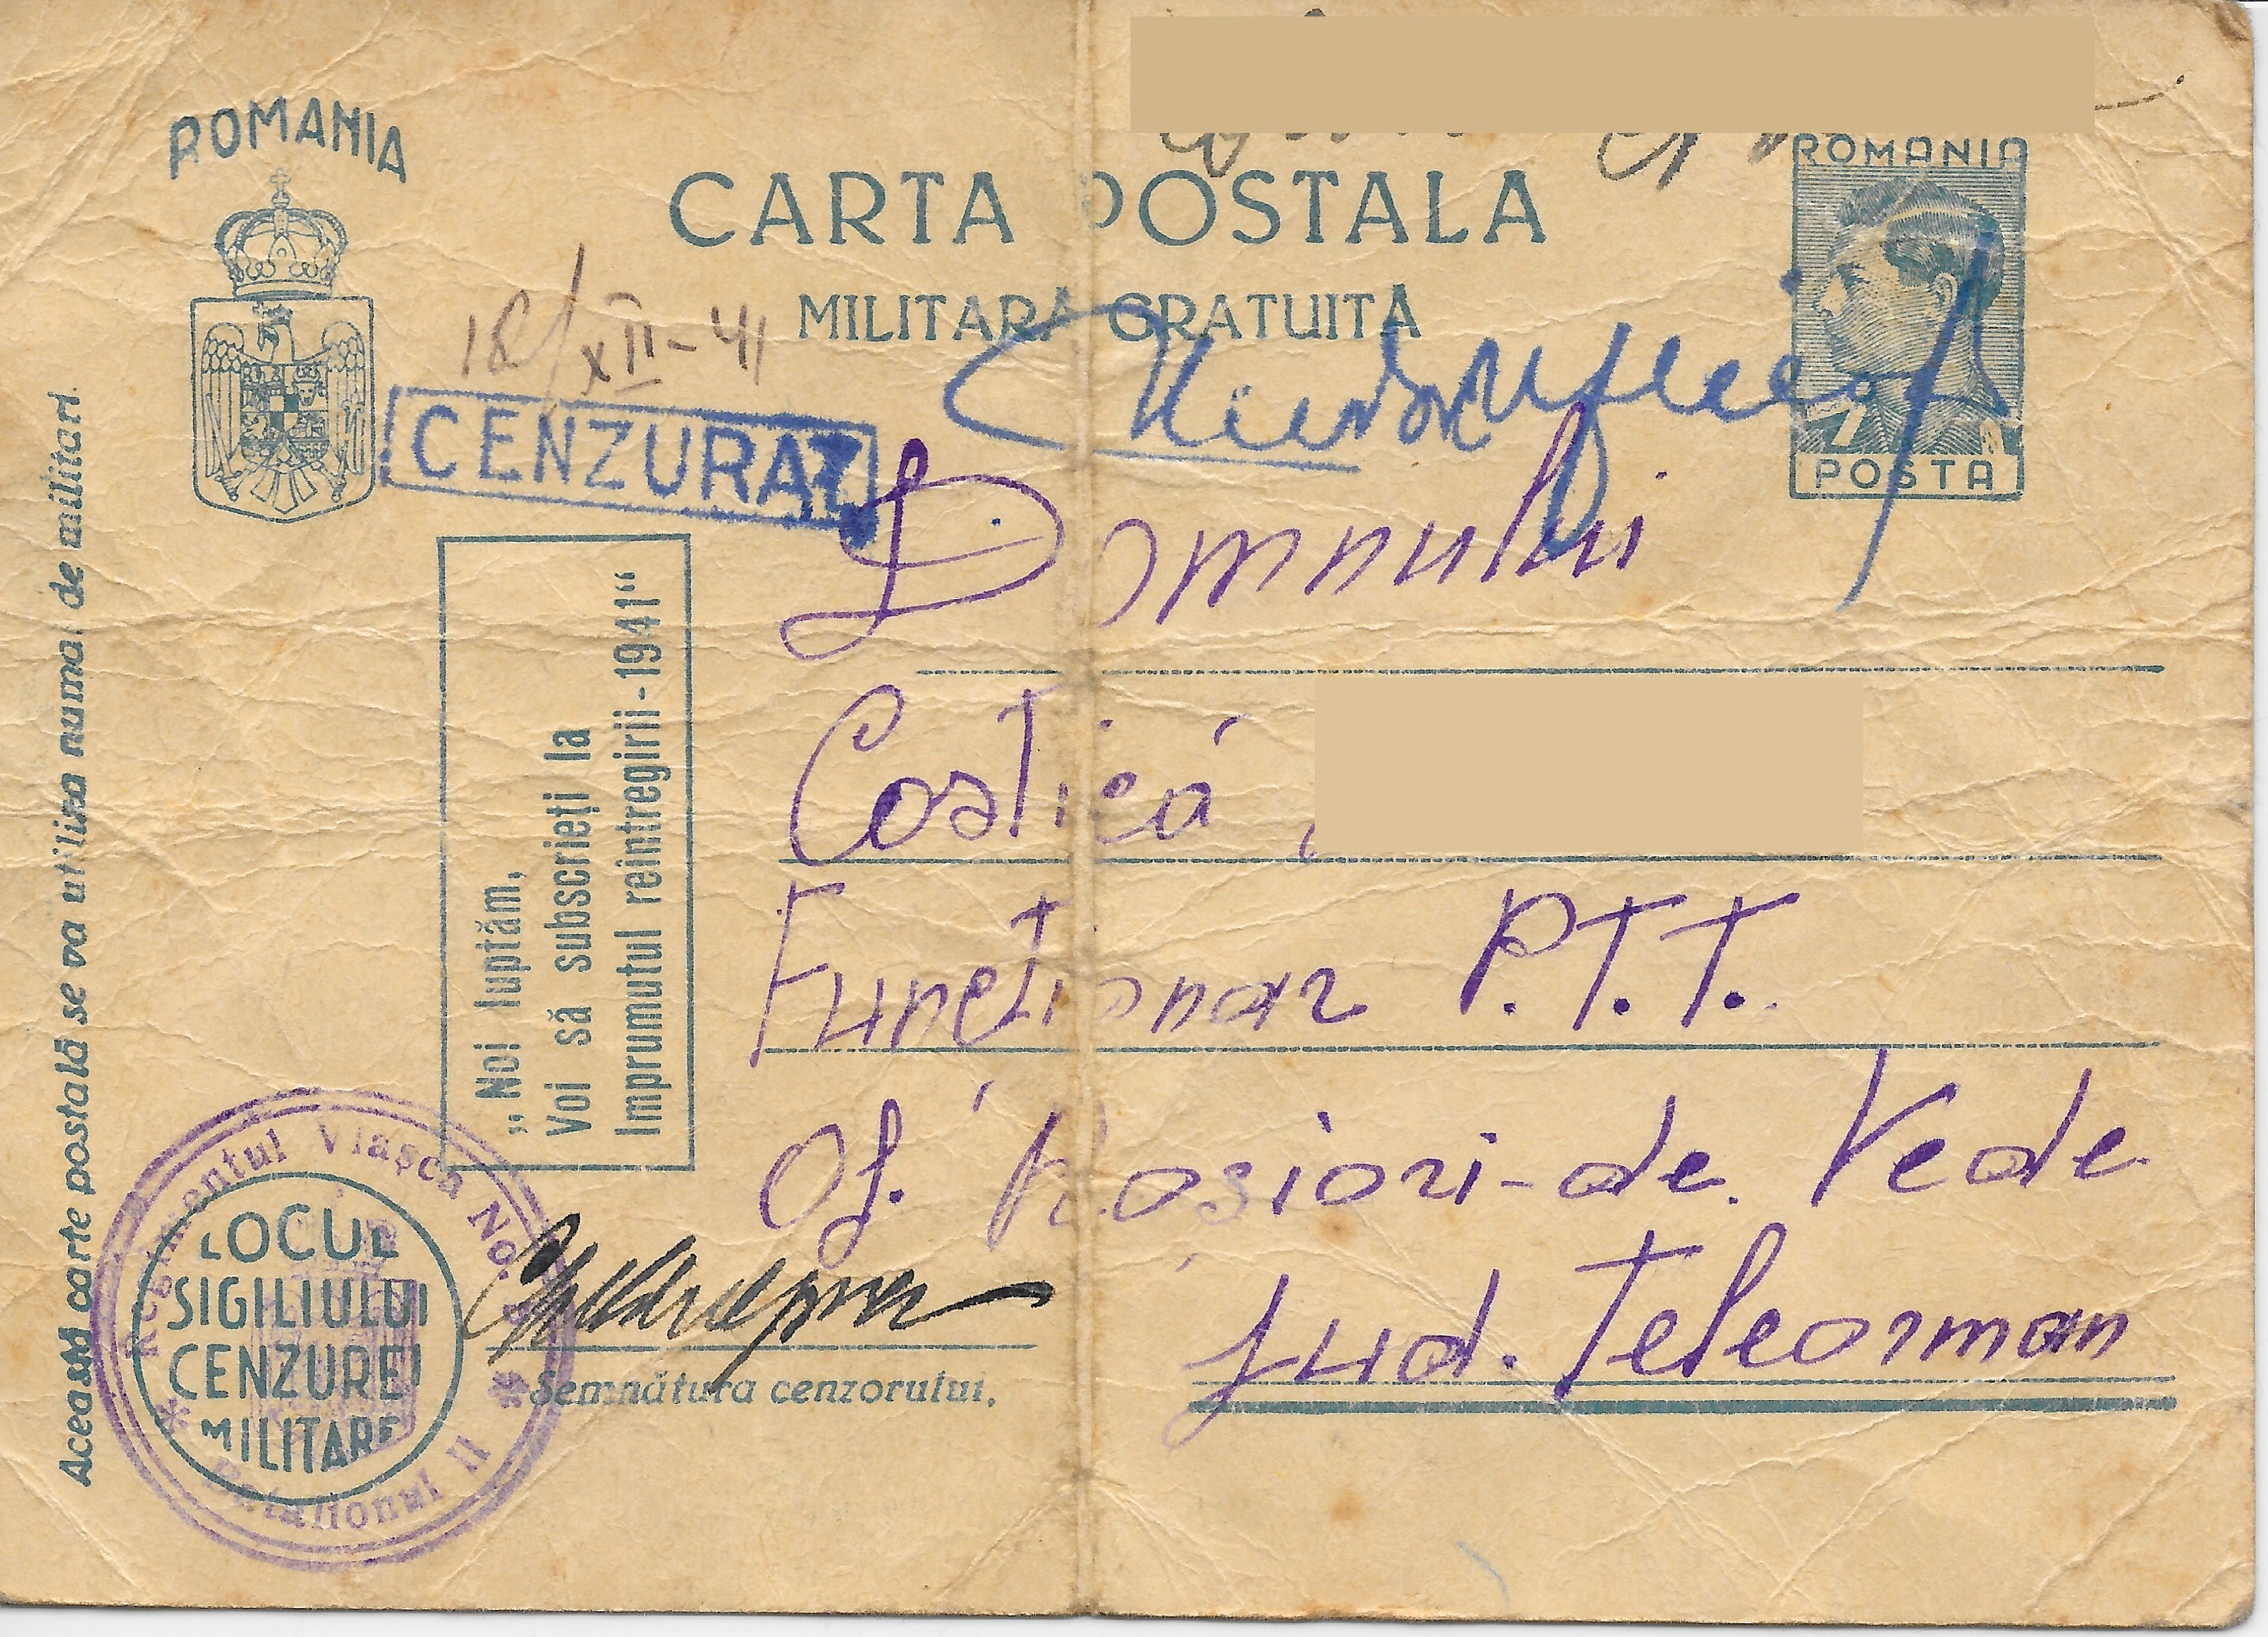 ROMANIA
CARTA POSTALA
MILITARA GRATUITA
ROMANIA
POSTA
18/XII-41
CENZURAT
Domnului
Costică
Funcționar P.T.T.
Of. Roșiori-de Vede
Jud. Teleorman
„Noi luptăm,
Voi să subscrieți la
Imprumutul reintregirii-1941“
Această carte postală se va utiliza numai de militari.
Regimentul Vlașca No.
Batalionul II
LOCUL
SIGILIULUI
CENZUREI
MILITARE
Semnătura cenzorului.